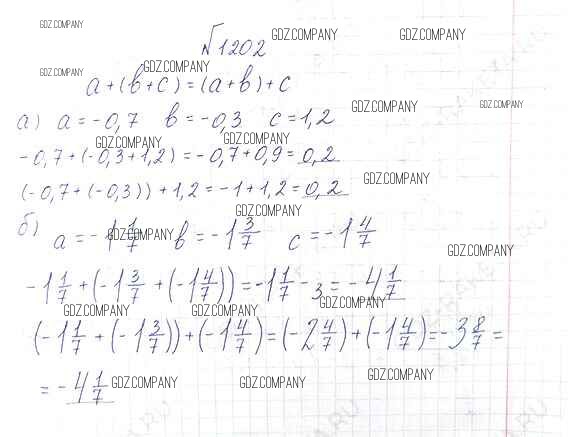 GDZ.COMPANY
№1202
GDZ.COMPANY GDZ.COMPANY
GDZ.COMPANY GDZ.COMPANY
a + (b + c) = (a + b) + c
а) a = -0,7 b = -0,3 c = 1,2
GDZ.COMPANY GDZ.COMPANY
GDZ.COMPANY GDZ.COMPANY
-0,7 + (-0,3 + 1,2) = -0,7 + 0,9 = 0,2
GDZ.COMPANY
(-0,7 + (-0,3)) + 1,2 = -1 + 1,2 = 0,2
GDZ.COMPANY
б) a = -1 1/7 b = -1 3/7 c = -1 4/7
GDZ.COMPANY GDZ.COMPANY
-1 1/7 + (-1 3/7 + (-1 4/7)) = -1 1/7 - 3 = -4 1/7
GDZ.COMPANY GDZ.COMPANY GDZ.COMPANY
(-1 1/7 + (-1 3/7)) + (-1 4/7) = (-2 4/7) + (-1 4/7) = -3 8/7 =
= -4 1/7
GDZ.COMPANY GDZ.COMPANY GDZ.COMPANY